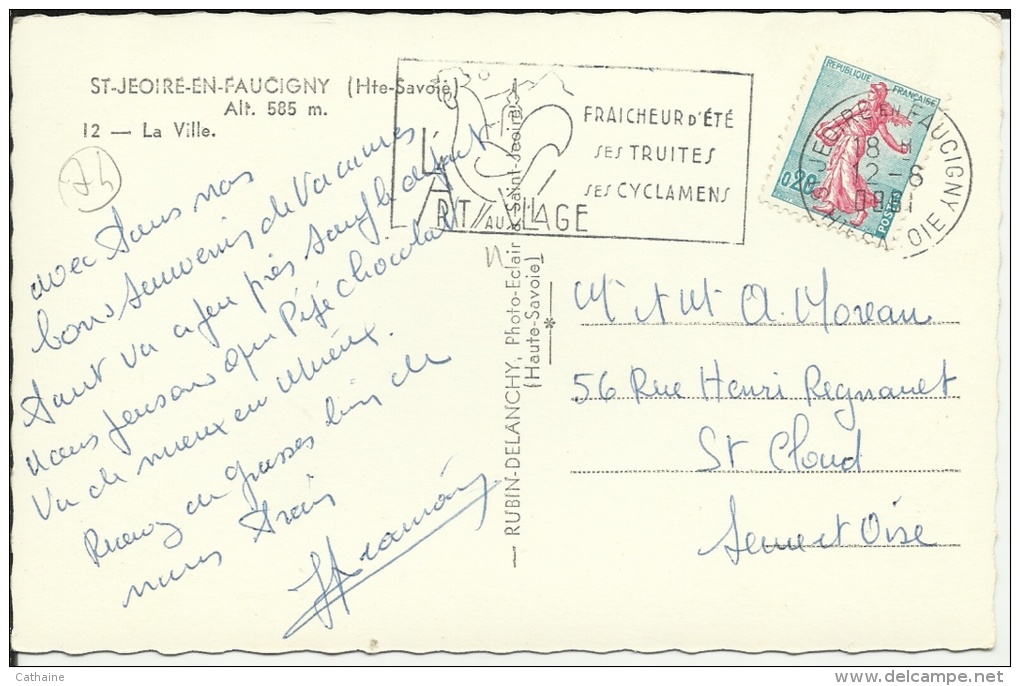 ST-JEOIRE-EN-FAUCIGNY (Hte-Savoie)
Alt. 585 m.
12 — La Ville.
74
avec tous nos
bons souvenirs de Vacances
tout va a peu près
nous pensons que Pépé chocolat
va de mieux en mieux.
Recevez de grosses bises de
nous trois
L'ART AU VILLAGE
FRAICHEUR D'ÉTÉ
SES TRUITES
SES CYCLAMENS
REPUBLIQUE FRANÇAISE
0,28
POSTES
ST JEOIRE EN FAUCIGNY
18 H
12-8
1961
HTE SAVOIE
— RUBIN-DELANCHY, Photo-Eclair à Saint-Jeoire
(Haute-Savoie)
Mr et Mme A. Moreau
56 Rue Henri Regnault
St Cloud
Seine et Oise
Cathaine
www.delcampe.net